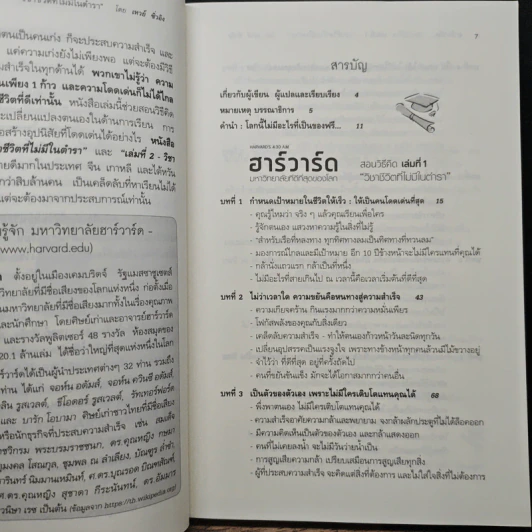 "วิชาชีวิตที่ไม่มีในตำรา" โดย เหวย์ ซิ่วอิง
ตนเป็นคนเก่ง ก็จะประสบความสำเร็จ และ
แต่ความเก่งยังไม่เพียงพอ แต่จะต้องมีวิธี
สำเร็จในทุกด้านได้ พวกเขาไม่รู้ว่า ความ
นเพียง 1 ก้าว และความโดดเด่นก็ไม่ได้ไกล
ชีวิตที่ดีเท่านั้น หนังสือเล่มนี้ช่วยสอนวิธีคิด
ะเปลี่ยนแปลงตนเองในด้านการเรียน การ
อสร้างอุปนิสัยที่โดดเด่นได้อย่างไร หนังสือ
ชีวิตที่ไม่มีในตำรา" และ "เล่มที่ 2 - วิชา
ายดีมากในประเทศ จีน เกาหลี และไต้หวัน
กว่าสิบล้านคน เป็นเคล็ดลับที่หาเรียนไม่ได้
แต่จะต้องมาจากประสบการณ์เท่านั้น
งรู้จัก มหาวิทยาลัยฮาร์วาร์ด -
www.harvard.edu)
ตั้งอยู่ในเมืองเคมบริดจ์ รัฐแมสซาชูเซตส์
วิทยาลัยที่มีชื่อเสียงของโลกแห่งหนึ่ง ก่อตั้งเมื่อ
นมหาวิทยาลัยที่มีชื่อเสียงมากทั้งในเรื่องคุณภาพ
และนักศึกษา โดยศิษย์เก่าและอาจารย์ฮาร์วาร์ด
และรางวัลพูลิตเซอร์ 48 รางวัล ห้องสมุดของ
20.1 ล้านเล่ม ได้ชื่อว่าใหญ่ที่สุดแห่งหนึ่งในโลก
ร์วาร์ดได้เป็นผู้นำประเทศต่างๆ 32 ท่าน รวมถึง
ท่าน ได้แก่ จอห์น อดัมส์, จอห์น ควินซี อดัมส์,
ลิน รูสเวลต์, ธีโอดอร์ รูสเวลต์, รัทเทอร์ฟอร์ด
และ บารัก โอบามา ศิษย์เก่าชาวไทยที่มีชื่อเสียง
หรือนักธุรกิจที่ประสบความสำเร็จ เช่น สมเด็จ
7
สารบัญ
เกี่ยวกับผู้เขียน ผู้แปลและเรียบเรียง 4
หมายเหตุ บรรณาธิการ 5
คำนำ : โลกนี้ไม่มีอะไรที่เป็นของฟรี... 11
ฮาร์วาร์ด
มหาวิทยาลัยที่ดีที่สุดของโลก
สอนวิธีคิด เล่มที่ 1
"วิชาชีวิตที่ไม่มีในตำรา"
บทที่ 1 กำหนดเป้าหมายในชีวิตให้เร็ว : ให้เป็นคนโดดเด่นที่สุด 15
- คุณรู้ไหมว่า จริง ๆ แล้วคุณเรียนเพื่อใคร
- รู้จักตนเอง แสวงหาความรู้ในสิ่งที่ไม่รู้
- "สำหรับเรือที่หลงทาง ทุกทิศทางลมเป็นทิศทางที่ทวนลม"
- มองการณ์ไกลและมีเป้าหมาย อีก 10 ปีข้างหน้าจะไม่มีใครแทนที่คุณได้
- กล้านั่งแถวแรก กล้าเป็นที่หนึ่ง
- ไม่มีอะไรที่สายเกินไป ณ เวลานี้คือเวลาเริ่มต้นที่ดีที่สุด
บทที่ 2 ไม่ว่าเวลาใด ความขยันคือหนทางสู่ความสำเร็จ 43
- ความเกียจคร้าน กินแรงมากกว่าความหมั่นเพียร
- โฟกัสพลังของคุณกับสิ่งเดียว
- เคล็ดลับความสำเร็จ - ทำให้ตนเองก้าวหน้าวันละนิดทุกวัน
- เปลี่ยนอุปสรรคเป็นแรงจูงใจ เพราะทางข้างหน้าทุกคนล้วนมีไม้ขวางอยู่
- จำไว้ว่า ที่ดีที่สุด อยู่ที่ครั้งถัดไป
- คนที่ขยันขันแข็ง มักจะได้โอกาสมากกว่าคนอื่น
บทที่ 3 เป็นตัวของตัวเอง เพราะไม่มีใครเติบโตแทนคุณได้ 68
- พึ่งพาตนเอง ไม่มีใครเติบโตแทนคุณได้
- ความสำเร็จอาศัยความกล้าและพยายาม จงกล้าผลักประตูที่ไม่ได้ล็อคออก
- มีความคิดเห็นเป็นตัวของตัวเอง และกล้าแสดงออก
- คนที่ไม่เคยลงน้ำ จะไม่มีวันว่ายน้ำเป็น
- การสูญเสียความกล้า เปรียบเสมือนการสูญเสียทุกสิ่ง
- ผู้ที่ประสบความสำเร็จ จะคิดแต่สิ่งที่ต้องการ และไม่ใส่ใจสิ่งที่ไม่ต้องการ